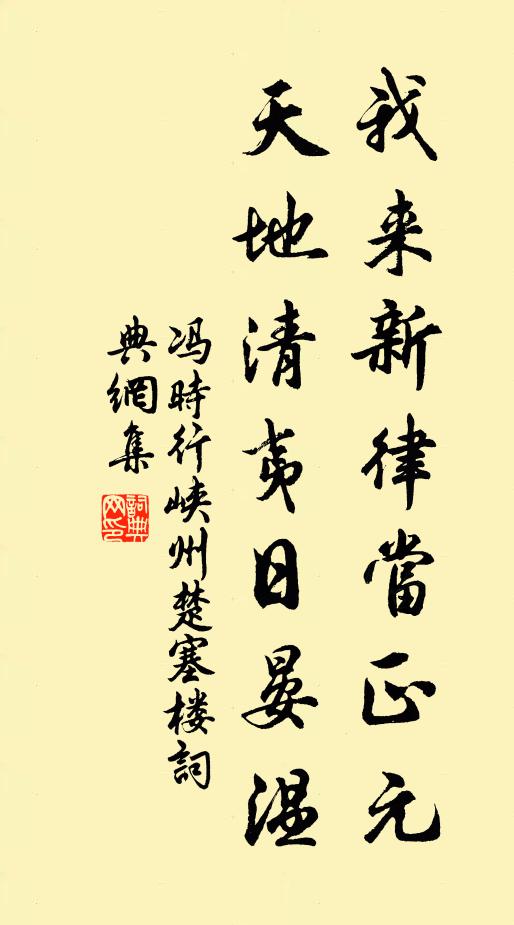 我来新律當正元
天地清夷日晏温
冯時行峡州楚塞楼詞
典網集
詞典网印